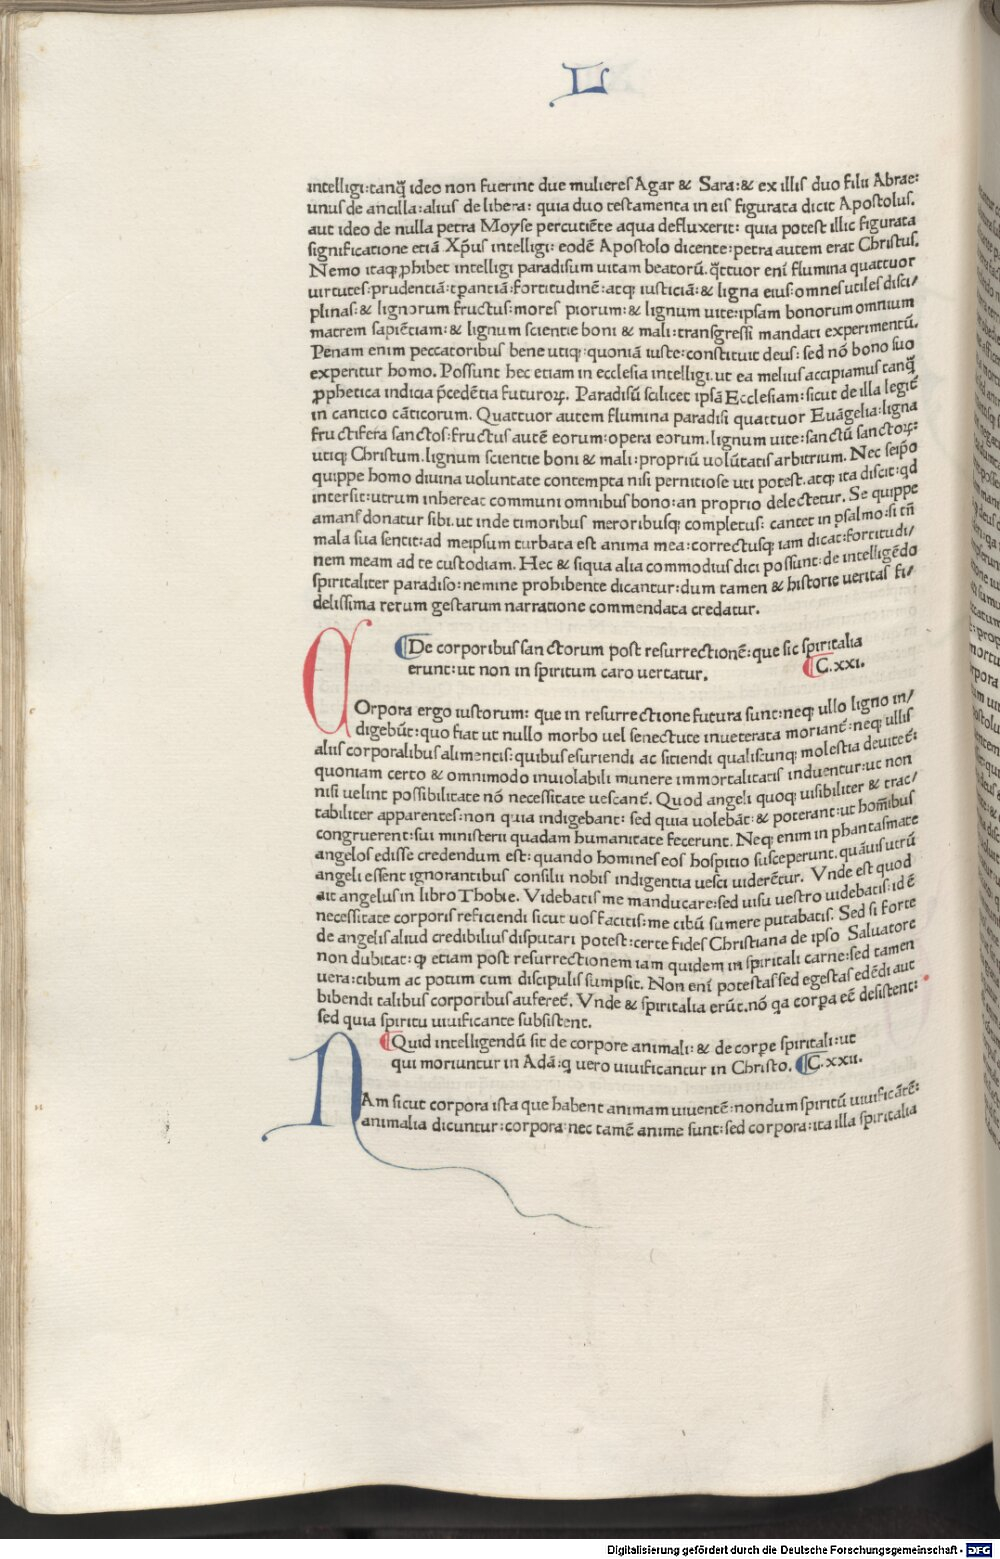 L
intelligi:tanq̃ ideo non fuerint due mulieres Agar & Sara:& ex illis duo filii Abrae:
unus de ancilla:alius de libera: quia duo testamenta in eis figurata dicit Apostolus.
aut ideo de nulla petra Moyse percutiẽte aqua defluxerit: quia potest illic figurata
significatione etiã Xp̃us intelligi: eodẽ Apostolo dicente:petra autem erat Christus.
Nemo itaq; ꝓhibet intelligi paradisum uitam beatorũ. q̃ttuor eni flumina quattuor
uirtutes:prudentiã:tꝑantiã:fortitudinẽ:atq; iusticiã:& ligna eius:omnes utiles disci/
plinas:& lignorum fructus:mores piorum:& lignum uite:ipsam bonorum omnium
matrem sapiẽtiam:& lignum scientie boni & mali:transgressi mandati experimentũ.
Penam enim peccatoribus bene utiq;:quoniã iuste:constituit deus: sed nõ bono suo
experitur homo. Possunt hec etiam in ecclesia intelligi.ut ea melius accipiamus tanq̃
ꝓphetica indicia p̃cedẽtia futuroꝝ. Paradisũ scilicet ipsã Ecclesiam:sicut de illa legit̃
in cantico cãticorum. Quattuor autem flumina paradisi quattuor Euãgelia:ligna
fructifera sanctos:fructus autẽ eorum:opera eorum.lignum uite:sanctũ sanctoꝝ:
utiq; Christum.lignum scientie boni & mali:propriũ uolũtatis arbitrium. Nec seip̃o
quippe homo diuina uoluntate contempta nisi pernitiose uti potest.atq; ita discit:qd
intersit:utrum inhereat communi omnibus bono:an proprio delectetur. Se quippe
amans donatur sibi.ut inde timoribus meroribusq; completus: cantet in psalmo:si tñ
mala sua sentit:ad meipsum turbata est anima mea:correctusq; iam dicat:fortitudi/
nem meam ad te custodiam. Hec & siqua alia commodius dici possunt:de intelligẽdo
spiritaliter paradiso:nemine prohibente dicantur:dum tamen & historie ueritas fi/
delissima rerum gestarum narratione commendata credatur.
De corporibus sanctorum post resurrectionẽ:que sic spiritalia
erunt:ut non in spiritum caro uertatur. C.xxi.
C
Orpora ergo iustorum: que in resurrectione futura sunt:neq; ullo ligno in/
digebũt:quo fiat ut nullo morbo uel senectute inueterata moriant̃:neq; ullis
aliis corporalibus alimentis:quibus esuriendi ac sitiendi qualiscunq; molestia deuitet̃:
quoniam certo & omnimodo inuiolabili munere immortalitatis induentur:ut non
nisi uelint possibilitate nõ necessitate uescant̃. Quod angeli quoq; uisibiliter & trac/
tabiliter apparentes:non quia indigebant: sed quia uolebãt:& poterant:ut homĩbus
congruerent:sui ministerii quadam humanitate fecerunt. Neq; enim in phantasmate
angelos edisse credendum est:quando homines eos hospitio susceperunt.quãuis utrũ
angeli essent ignorantibus consilii nobis indigentia uesci uiderẽtur. Vnde est quod
ait angelus in libro Thobie. Videbatis me manducare:sed uisu uestro uidebatis:id ẽ
necessitate corporis reficiendi sicut uos facitis:me cibũ sumere putabatis. Sed si forte
de angelis aliud credibilius disputari potest:certe fides Christiana de ipso Saluatore
non dubitat:ꝙ etiam post resurrectionem iam quidem in spiritali carne:sed tamen
uera:cibum ac potum cum discipulis sumpsit. Non eni potestas sed egestas edẽdi aut
bibendi talibus corporibus auferet̃. Vnde & spiritalia erũt.nõ qa corꝑa eẽ desistent:
sed quia spiritu uiuificante subsistent.
Quid intelligendũ sit de corpore animali:& de corꝑe spiritali:ut
qui moriuntur in Adã:q uero uiuificantur in Christo. C.xxii.
N
Am sicut corpora ista que habent animam uiuentẽ:nondum spiritũ uiuificãtẽ:
animalia dicuntur:corpora:nec tamẽ anime sunt:sed corpora:ita illa spiritalia
Digitalisierung gefördert durch die Deutsche Forschungsgemeinschaft - DFG